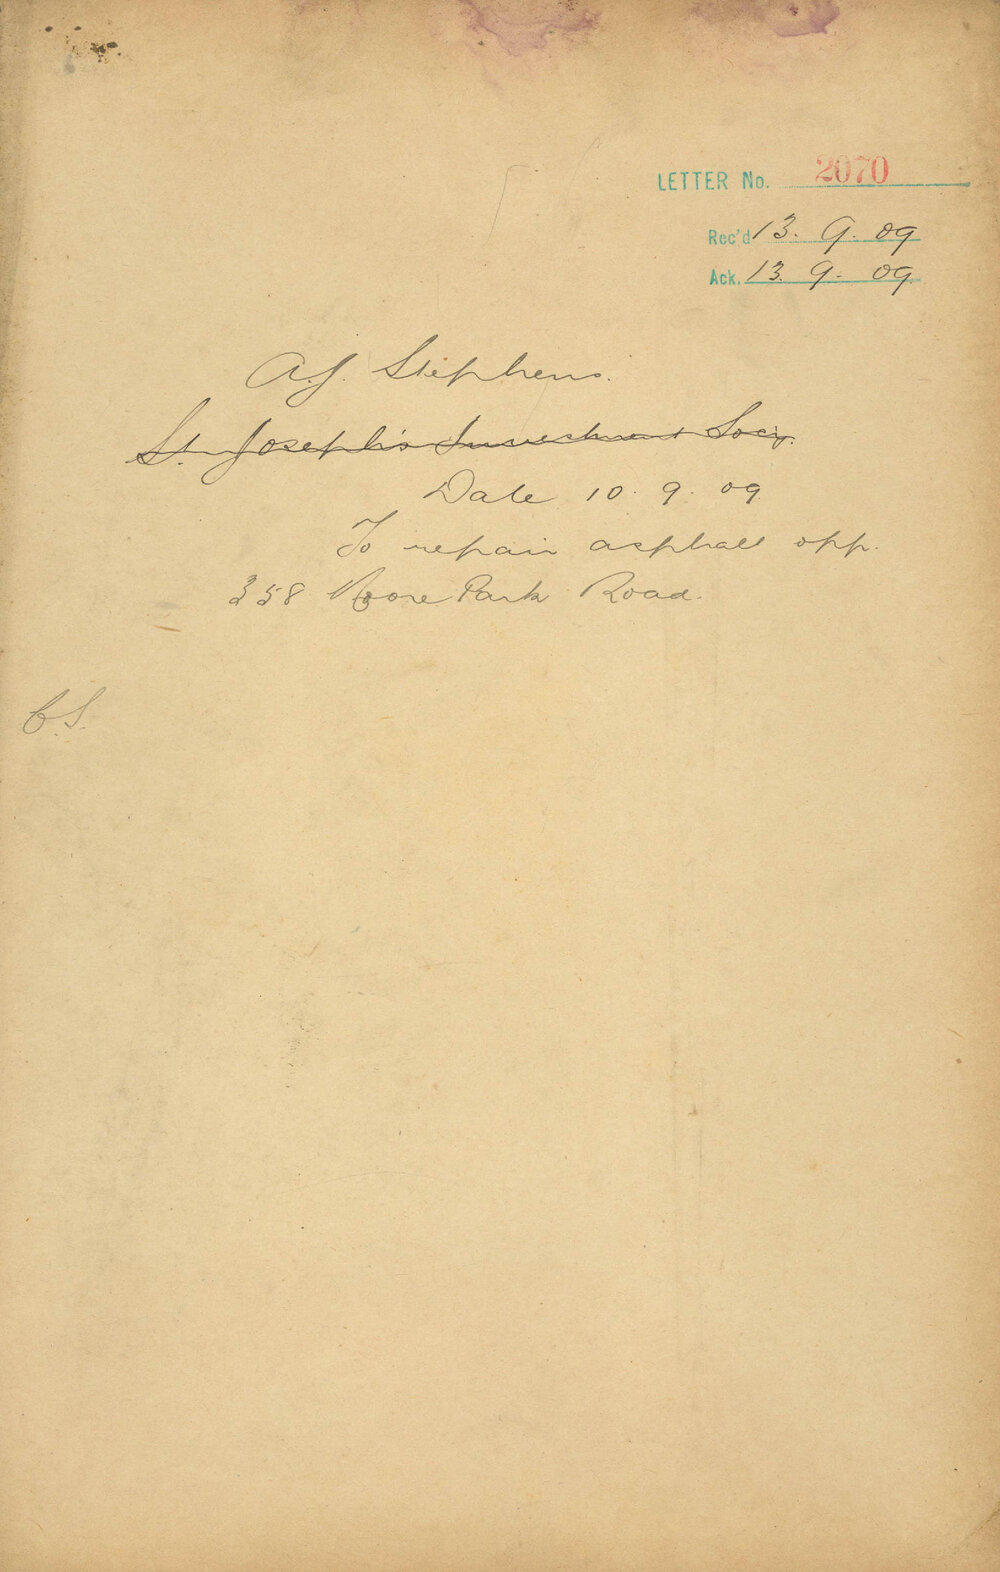 LETTER No. 2070
Rec'd 13. 9. 09
Ack. 13. 9. 09
A.J. Stephens.
St. Joseph's Investment Socy.
Date 10. 9. 09
To repair asphalt opp.
358 Moore Park Road.
C.S.